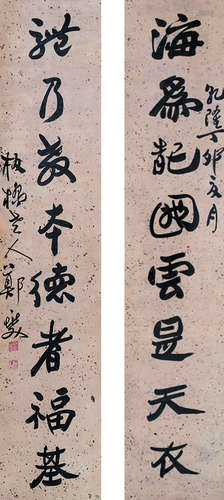 乾隆丁卯月
海為國雲是天衣
禮乃教本德者福基
板橋老人鄭燮